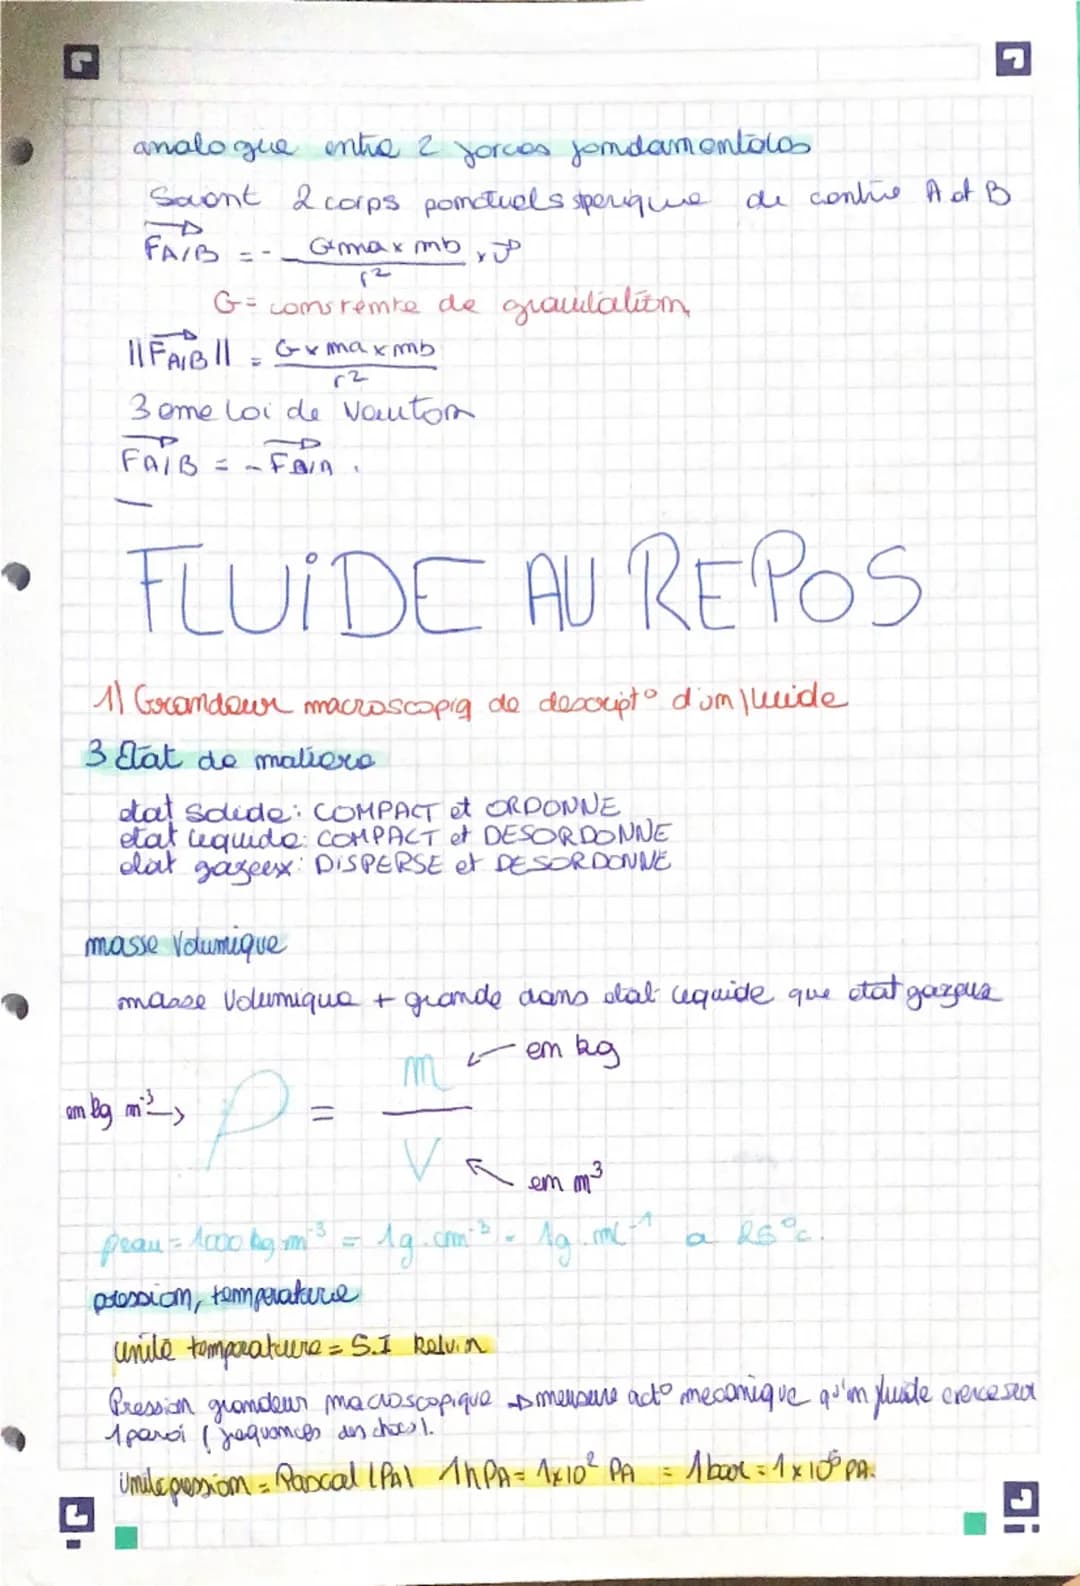 analogue entre 2 forces fondamentales
Soient 2 corps ponctuels sperique de centre A et B
FA/B = - G×ma×mb / r² × u
G = constante de gravitation
||FA/B|| = G×ma×mb / r²
3eme loi de Newton
FA/B = - FB/A.
FLUiDE AU REPOS
1) Grandeur macroscopiq de descript° d'un fluide
3 Etat de matiere
etat solide: COMPACT et ORDONNE
etat liquide: COMPACT et DESORDONNE
etat gazeex: DiSPERSE et DESORDONNE
masse Volumique
masse Volumique + grande dans etat liquide que etat gazeux
en kg m⁻³ → ρ = m / V ← en kg
← en m³
ρeau = 1000 kg.m⁻³ = 1g.cm⁻³ = 1g.ml⁻¹ a 25°c.
pression, temperature
unité temperature = S.I Kelvin
Pression grandeur macroscopique → mesure act° mecanique qu'un fluide exerce sur
1 paroi (frequences des chocs).
Unite pression = Pascal (PA) 1hPA = 1×10² PA = 1bar = 1×10⁵ PA.